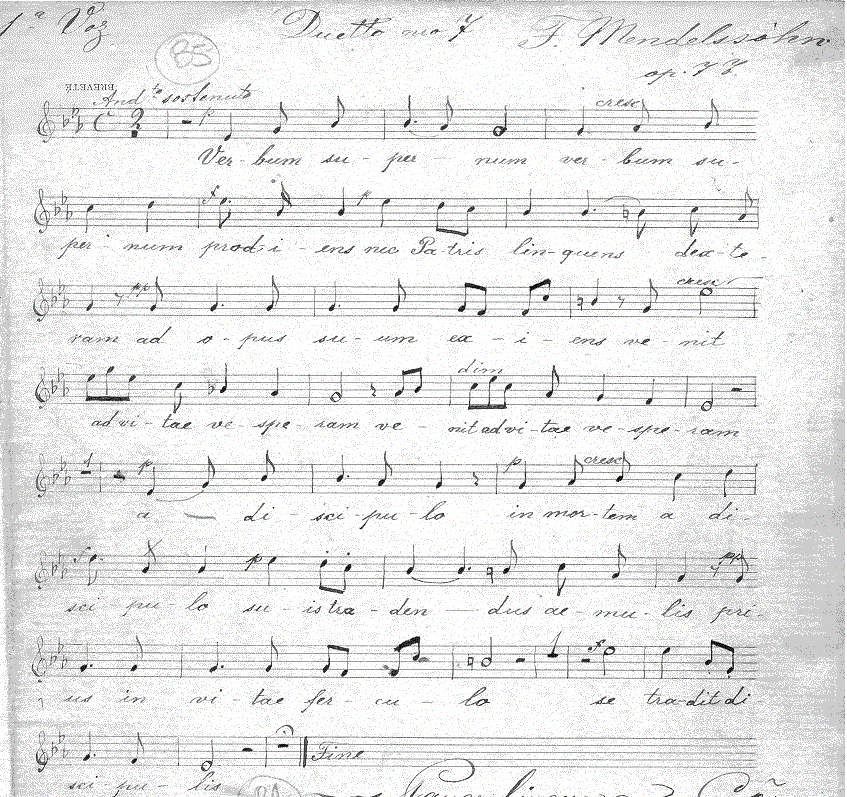 1ª Voz
85
Duetto no 7
F. Mendelssohn
op. 77
BREVETÉ
And.te sostenuto
p cresc
Ver-bum su-per-num ver-bum su-
p
per-num prod-i-ens nec Pa-tris lin-quens dex-te-
pp cresc
ram ad o-pus su-um ex-i-ens ve-nit
dim
ad vi-tae ve-spe-ram ve-nit ad vi-tae ve-spe-ram
1 p p cresc
a di-sci-pu-lo in mor-tem a di-
p pp
sci-pu-lo su-is tra-den-dus ae-mu-lis pri-
1
us in vi-tae fer-cu-lo se tra-dit di-
Fine
sci-pu-lis